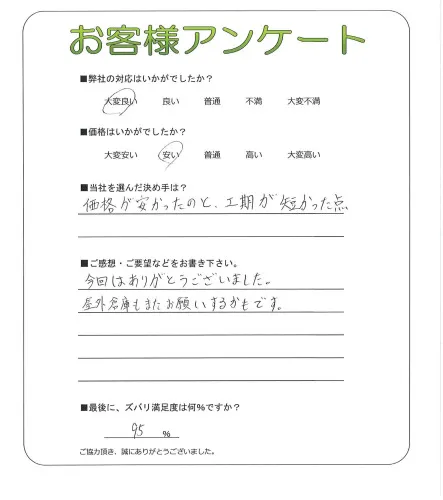 お客様アンケート
■弊社の対応はいかがでしたか?
大変良い 良い 普通 不満 大変不満
■価格はいかがでしたか?
大変安い 安い 普通 高い 大変高い
■当社を選んだ決め手は?
価格が安かったのと、工期が短かった点
■ご感想・ご要望などをお書き下さい。
今回はありがとうございました。
屋外倉庫もまたお願いするかもです。
■最後に、ズバリ満足度は何%ですか?
95 %
ご協力頂き、誠にありがとうございました。